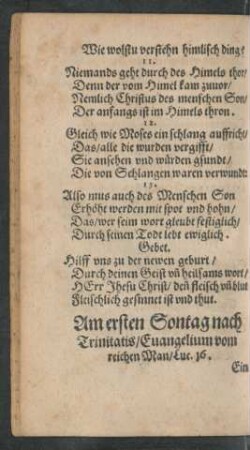 Wie wolstu verstehn himlisch ding?
11.
Niemands geht durch des Himels thor/
Denn der vom Himel kam zuuor/
Nemlich Christus des menschen Son/
Der anfangs ist im Himels thron.
12.
Gleich wie Moses ein schlang auffricht/
Das/alle die wurden vergifft/
Sie ansehen vnd würden gsundt/
Die von Schlangen waren verwundt.
13.
Also mus auch des Menschen Son
Erhöht werden mit spot vnd hohn/
Das/wer seim wort gleubt festiglich/
Durch seinen Todt lebt ewiglich.
Gebet.
Hilff vns zu der newen geburt/
Durch deinen Geist vñ heilsams wort/
HErr Jhesu Christ/ deñ fleisch vñ blut
Fleischlich gesinnet ist vnd thut.
Am ersten Sontag nach
Trinitatis/Euangelium vom
reichen Man/Luc. 16.
Ein